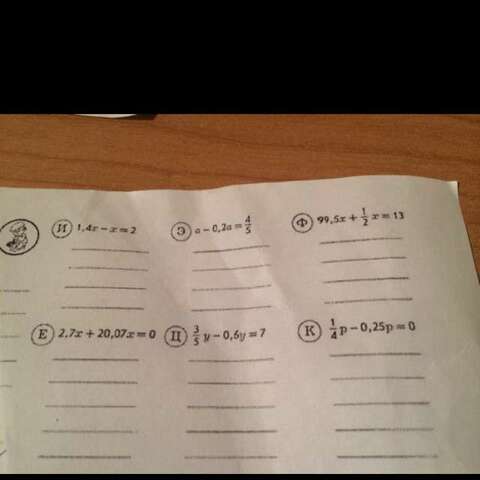 И 1,4x − x = 2
Э a − 0,2a = 4/5
Ф 99,5x + 1/2 x = 13
Е 2,7x + 20,07x = 0
Ц 3/5 y − 0,6y = 7
К 1/4 p − 0,25p = 0